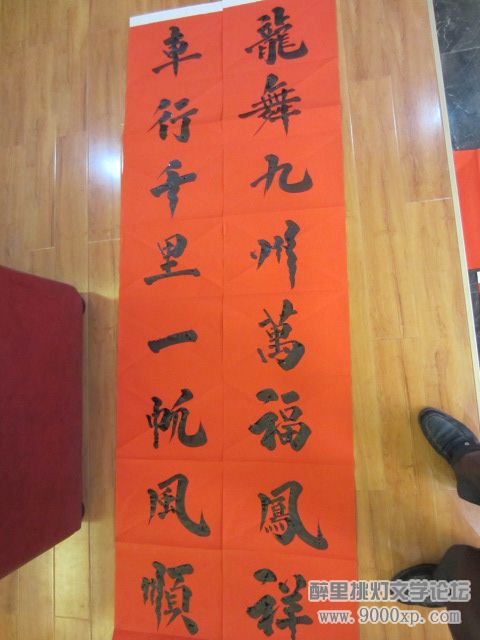 龍舞九州萬福鳳祥
車行千里一帆風順
醉里挑灯文学论坛
www.9000xp.com